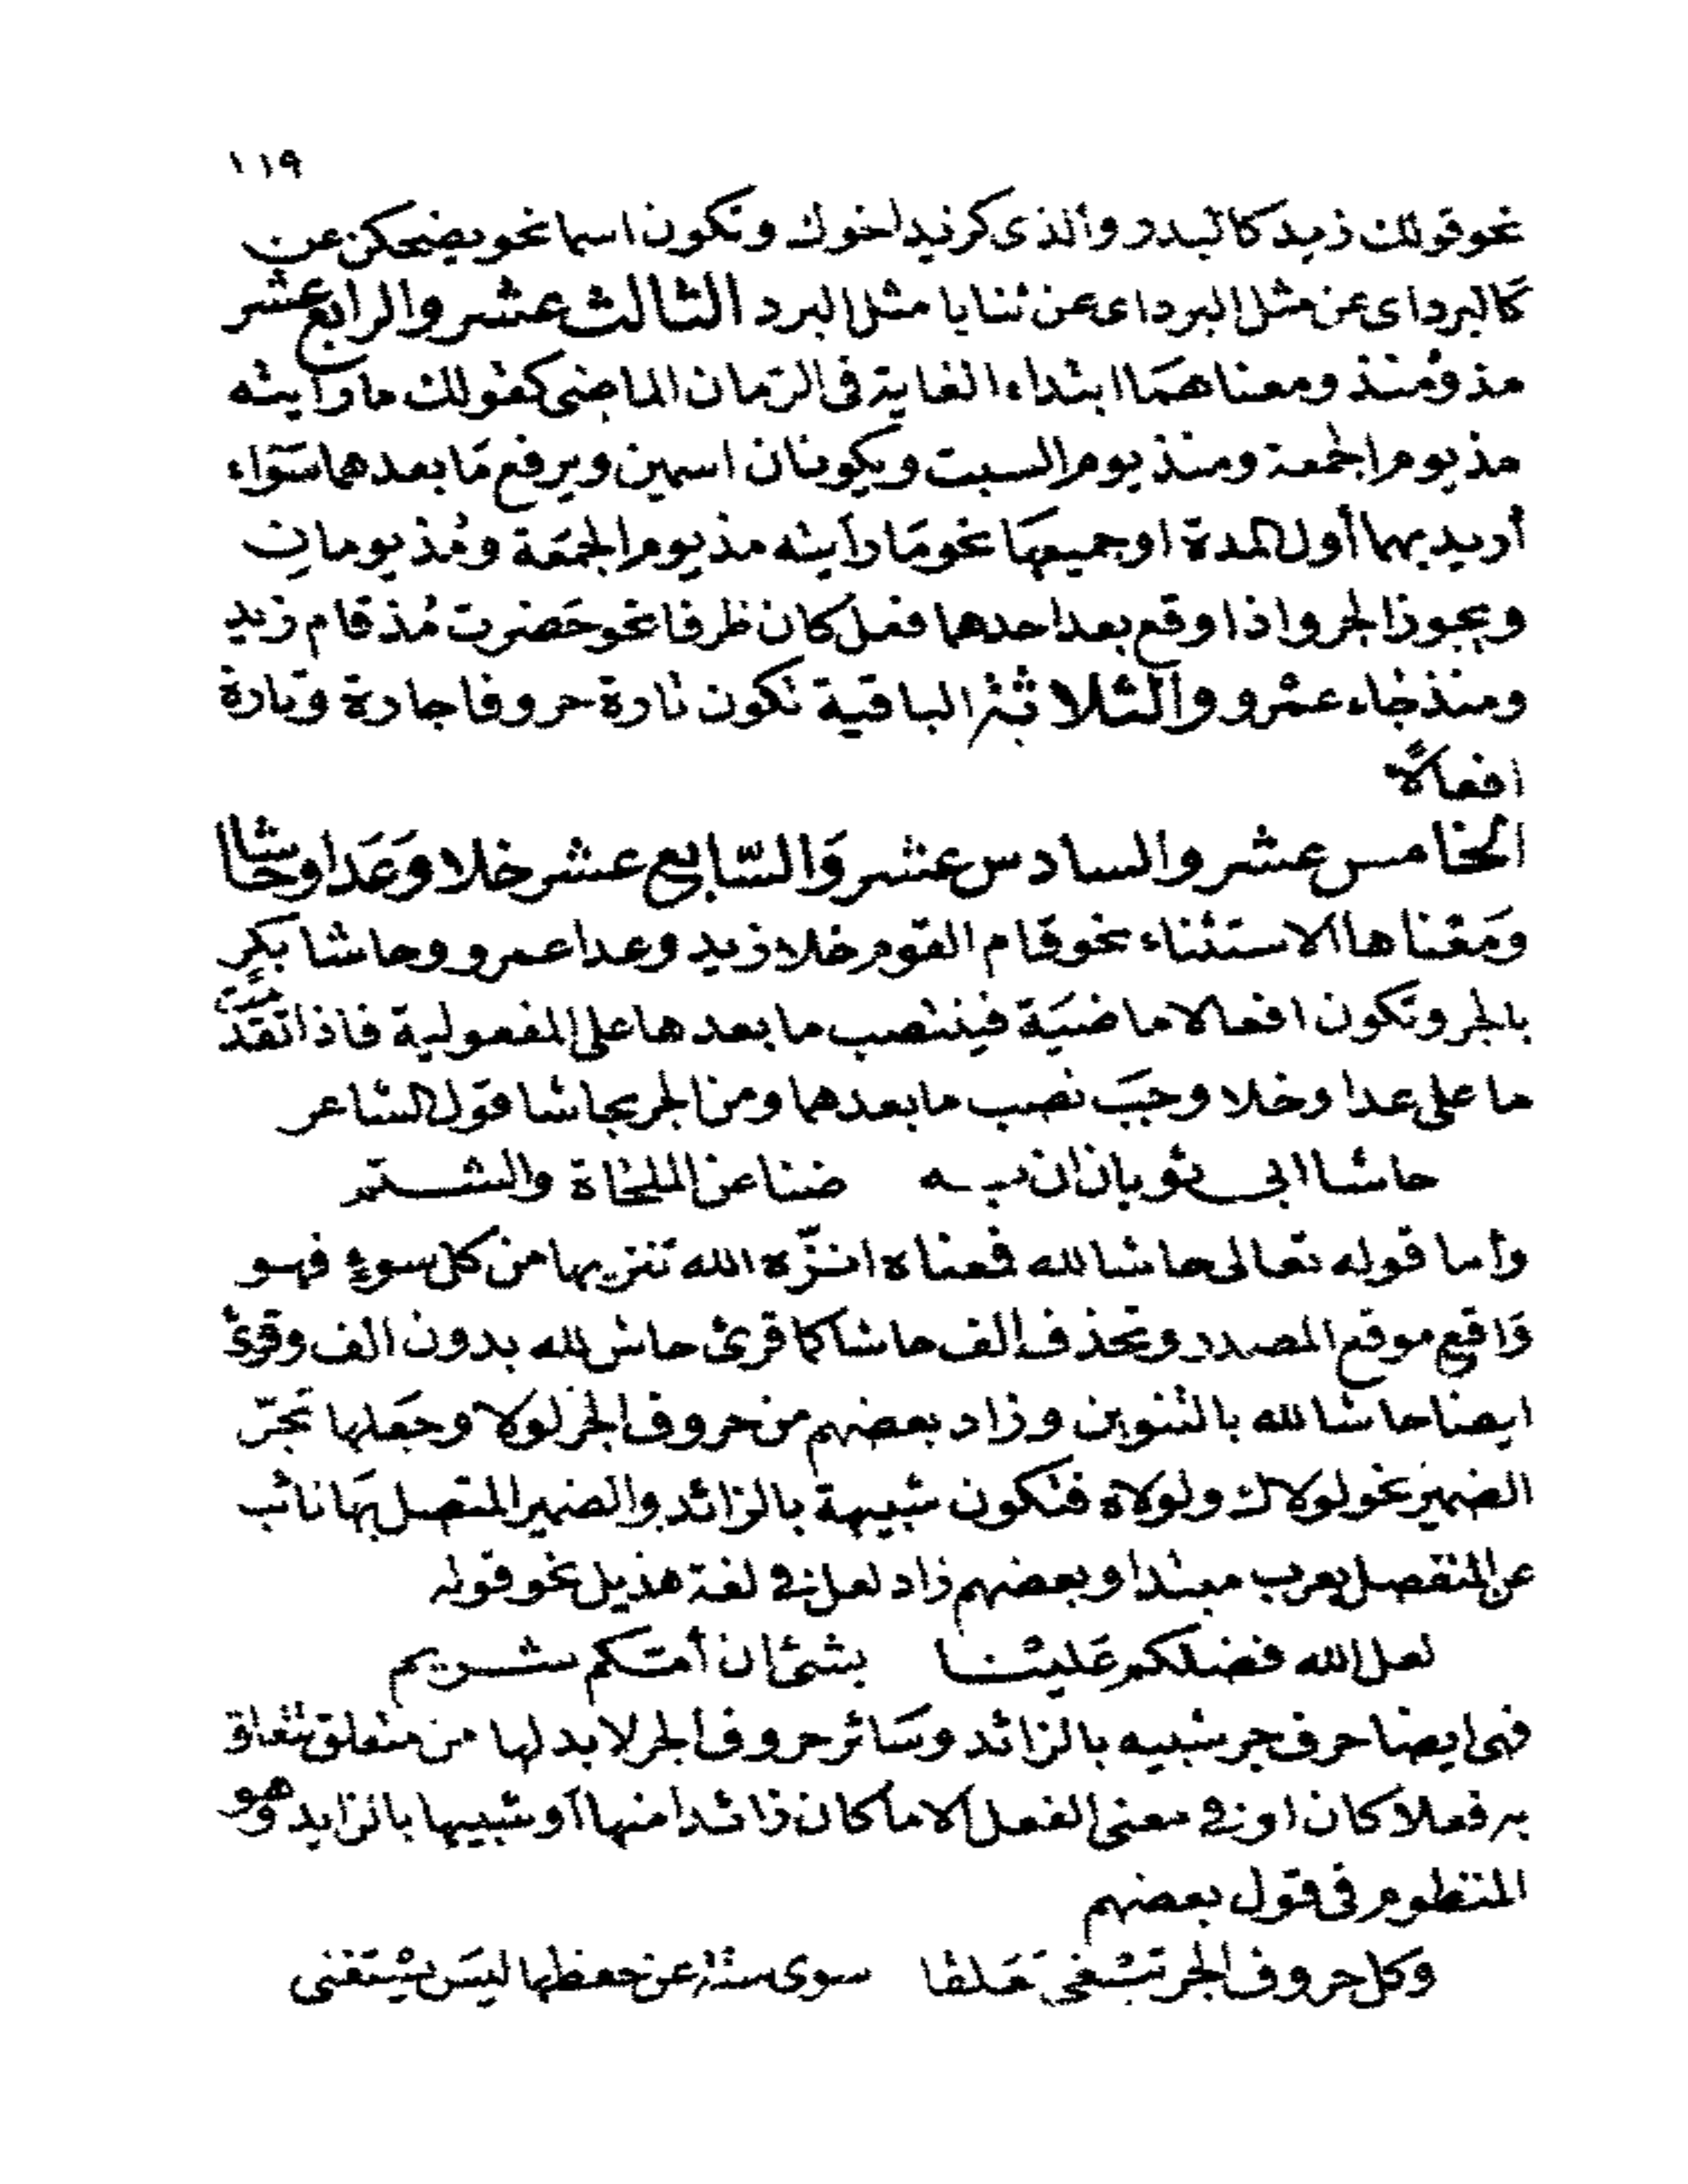 ١١٩
نحو قولك زيد كالبدر والذى كزيد اخوك وتكون اسما نحو يضحكن عن
كالبرد اى عن مثل البرد اى عن ثنايا مثل البرد الثالث عشر والرابع عشر
مذ ومُنذ ومعناهمَا ابتداء الغاية فى الزمان الماضى كقولك ما رايته
مذ يوم الجمعة ومنذ يوم السبت ويكونان اسمين ويرفع مَا بعدهما سَوَاء
أريد بهما أول المدة او جميعهَا نحو مَا رأيته مذ يوم الجمعَة ومُذ يومانِ
ويجوز الجر واذا وقع بعد احدهما فعل كان ظرفا نحو حَضرت مُذ قام زيد
ومنذ جَاء عمْرو والثلاثة الباقية تكون تارة حروفا جارة وتارة
افعالاً
الخامس عشر والسادس عشر وَالسّابع عشر خلا وَعَدا وحَاشا
وَمَعْناها الاستثناء نحو قام القوم خلا زيدٍ وعدا عمرو وحاشا بكرٍ
بالجر وتكون افعالا ماضيَة فينتصب ما بعدها على المفعولية فاذا تقدَّمت
ما على عدا وخلا وجَبَ نصب ما بعدهما ومن الجر بحاشا قول الشاعر
حاشا ابى ثوبان ان به ضنا عن الملحَاة والشتم
وأما قوله تعالى حاشا لله فمعناه انزّه الله تنزيها من كل سوءٍ فهو
وَاقع موقع المصدر وتحذف الف حاشا كما قرئ حاش لله بدون الف وقرئ
ايضا حاشا لله بالتنوين وزاد بعضهم من حروف الجر لولا وجعَلها تجرّ
الضمير نحو لولاك ولولاه فتكون شبيهة بالزائد والضمير المتصل بهَا نائب
عن المنفصل يعرب مبتدا وبعضهم زاد لعل فى لغة هذيل نحو قوله
لعل الله فضلكم عَليْنا بشئ ان أمّكم شريم
فهى ايضا حرف جر شبيه بالزائد وسَائر حروف الجر لا بد لها من متعلق تتعلق
به فعلا كان او فى معنى الفعل الا ما كان زائدا منها أو شبيها بالزايد وهو
المنظوم فى قول بعضهم
وكل حروف الجر تبْتغى عَلقا سوى ستة عن حفظها ليسَ يسْتغنى